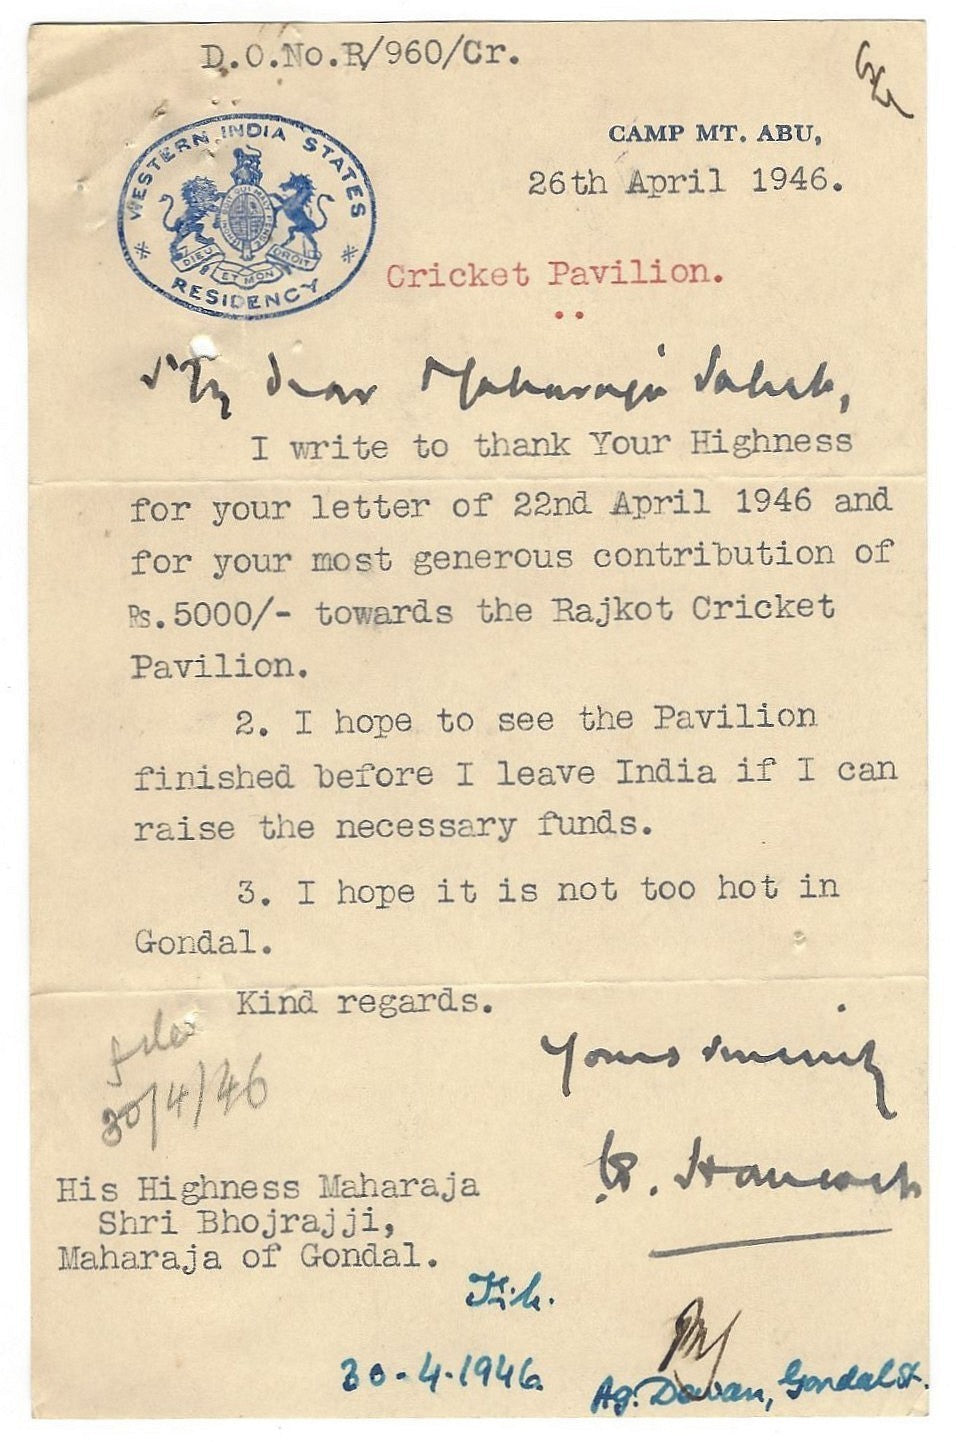 D.O.No.R/960/Cr.
WESTERN INDIA STATES
RESIDENCY
HONI SOIT QUI MAL Y PENSE
DIEU ET MON DROIT
CAMP MT. ABU,
26th April 1946.
Cricket Pavilion.
My dear Maharaja Saheb,
I write to thank Your Highness
for your letter of 22nd April 1946 and
for your most generous contribution of
Rs.5000/- towards the Rajkot Cricket
Pavilion.
2. I hope to see the Pavilion
finished before I leave India if I can
raise the necessary funds.
3. I hope it is not too hot in
Gondal.
Kind regards.
Yours sincerely
Hancock
File
30/4/46
His Highness Maharaja
Shri Bhojrajji,
Maharaja of Gondal.
File.
30-4-1946.
Ag. Dewan, Gondal St.